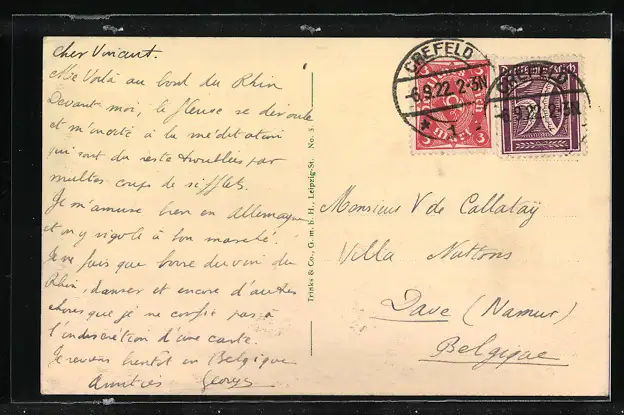 Cher Vincent.
Me Voilà au bord du Rhin
Devant moi, le fleuve se déroule
et m'incite à la méditation
qui sont du reste troublées par
multes coups de sifflets.
Je m'amuse bien en Allemagne
et on y rigole à bon marché.
Je ne fais que boire du vin du
Rhin, danser et encore d'autres
choses que je ne confie pas à
l'indiscrétion d'une carte.
Je reviens bientôt en Belgique
Amitiés Georges
Trinks & Co., G. m. b. H., Leipzig-St. No. 5.
CREFELD
-6.9.22. 2-3N
* 1
CREFELD
-6.9.22. 2-3N
Monsieur V de Callataÿ
Villa
Dave (Namur)
Belgique